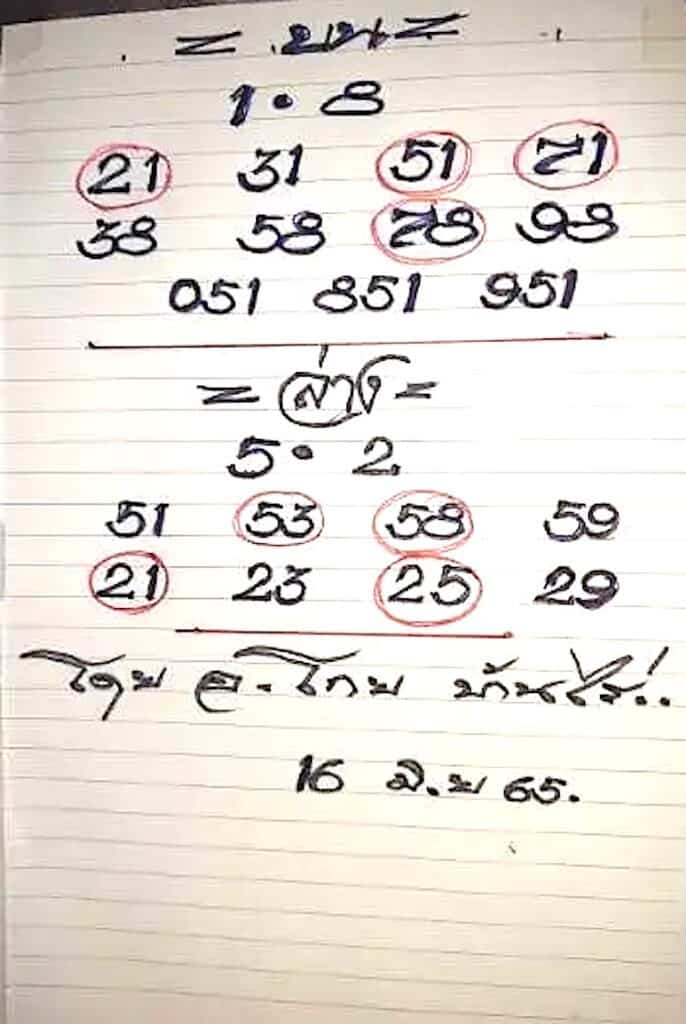 = บน =
1 • 8
21 31 51 71
38 58 78 98
051 851 951
= ล่าง =
5 • 2
51 53 58 59
21 23 25 29
โดย อ. โกย บ้านไร่..
16 มิ.ย 65.